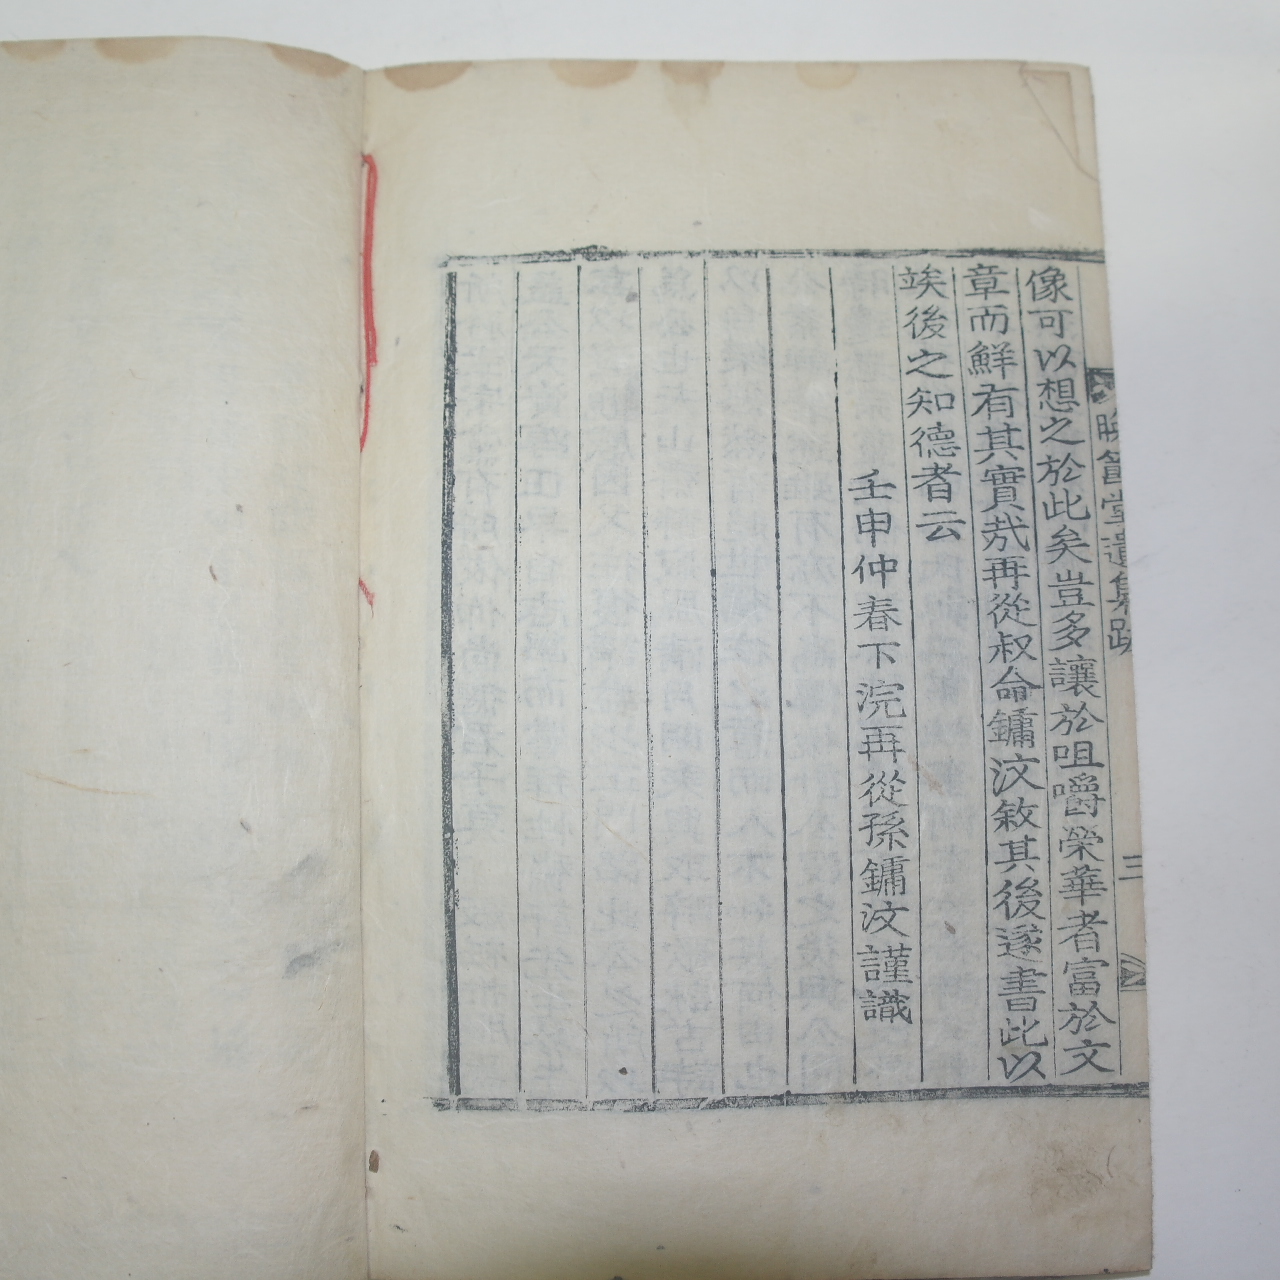 晚節堂遺集跋
三
像可以想之於此矣豈多讓於咀嚼榮華者富於文
章而鮮有其實哉再從叔命鏞汶敘其後遂書此以
竢後之知德者云
壬申仲春下浣再從孫鏞汶謹識